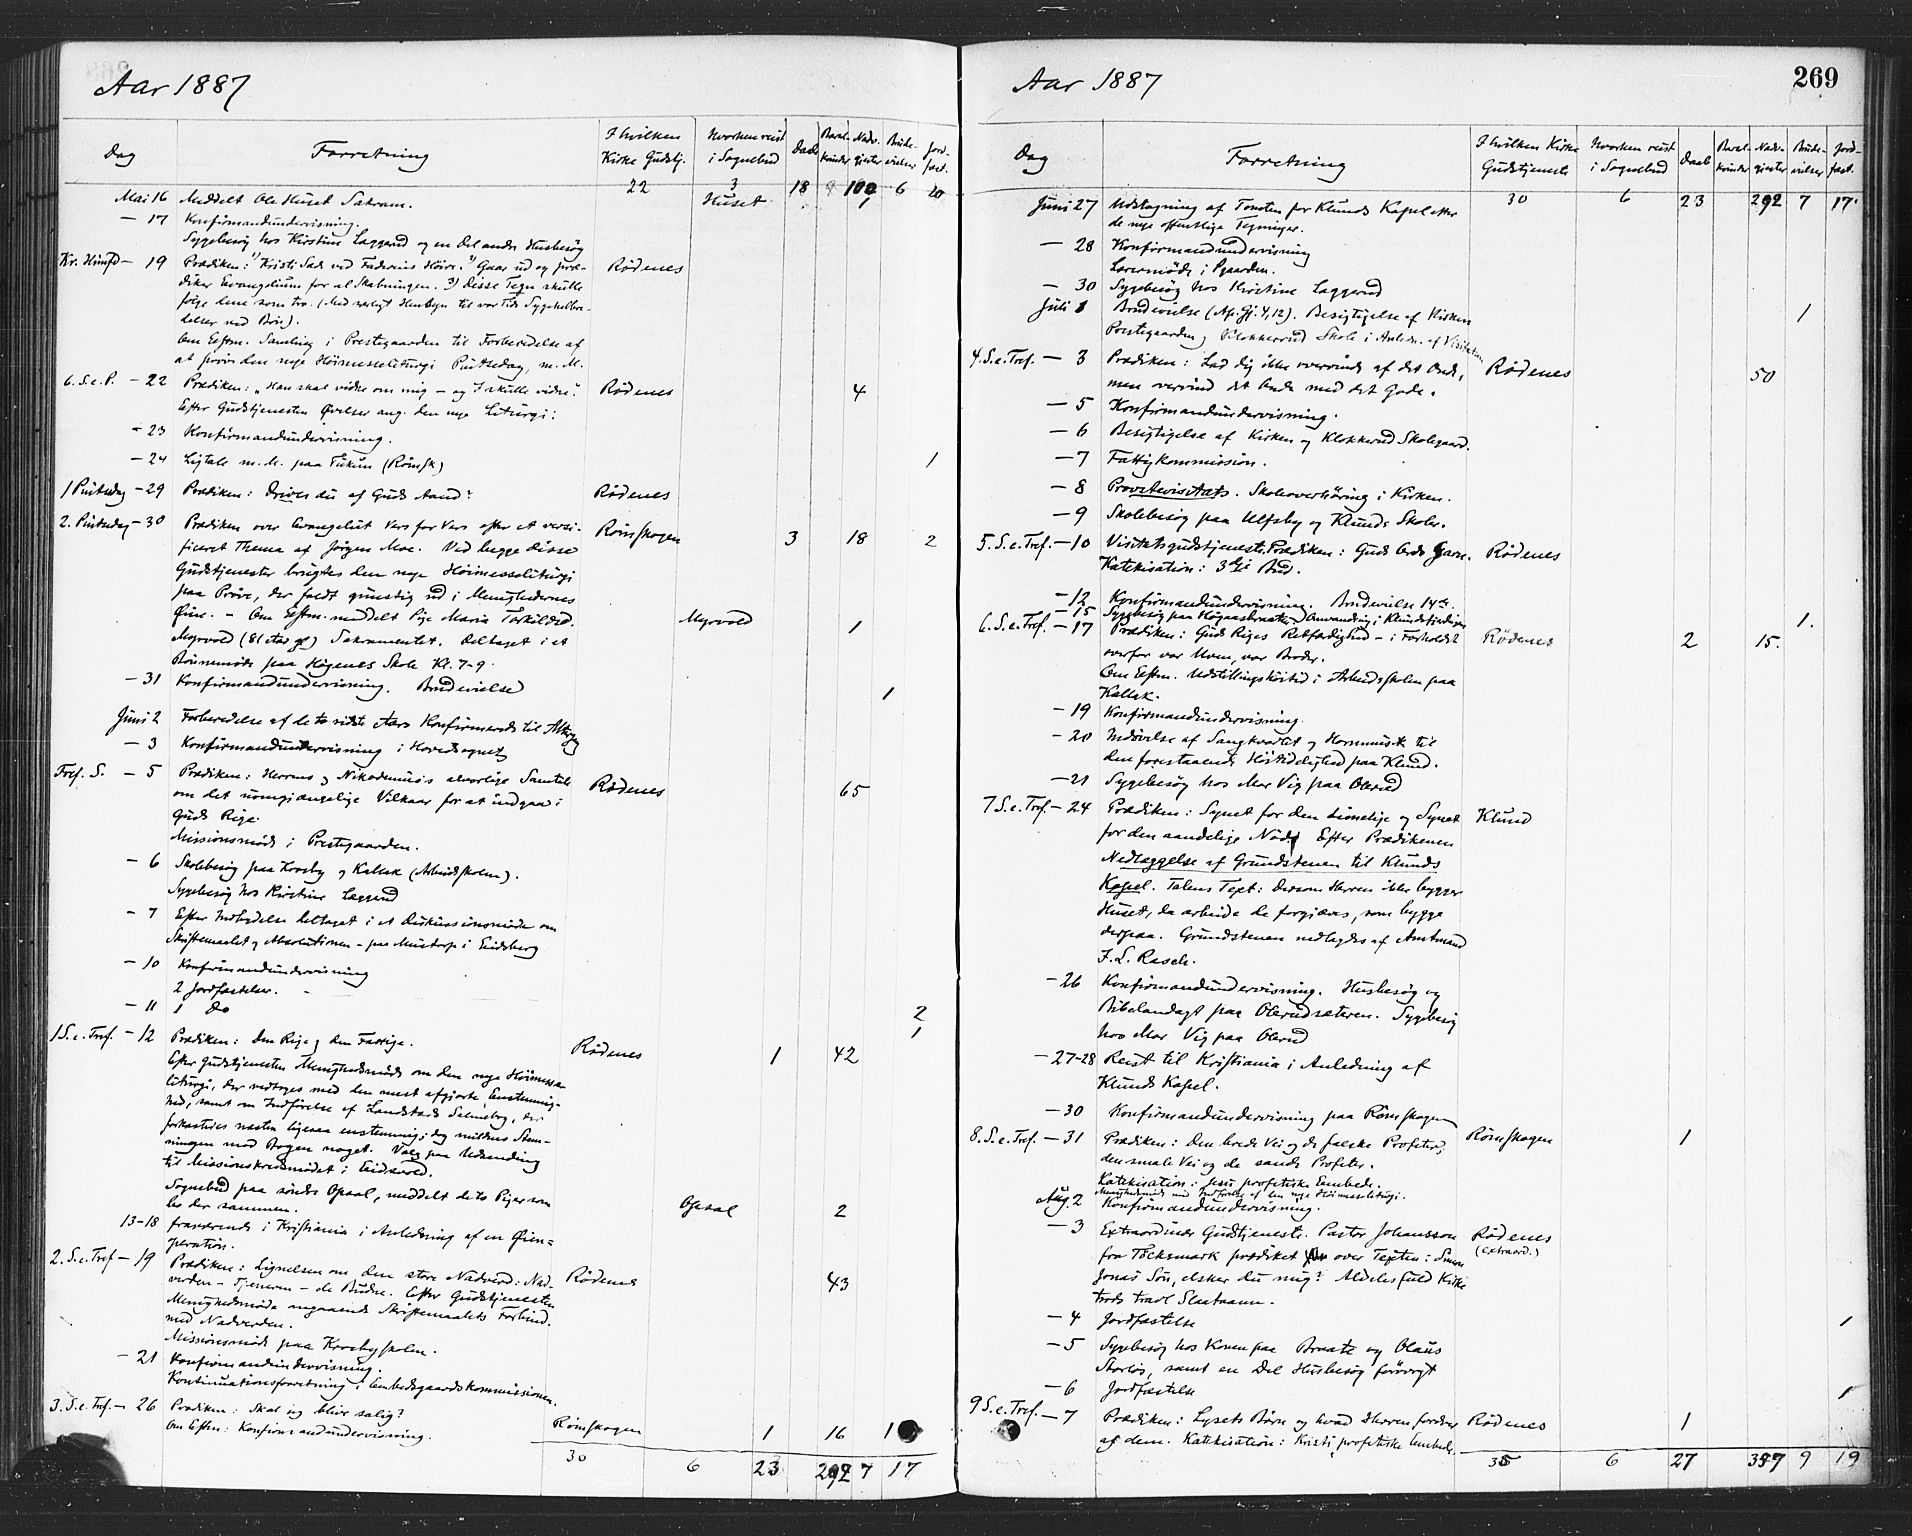 Aar 1887
Dag Forretning I hvilken Kirke Gudstj. Hvorhen reist i Sognebud Daab Barselkvinder Nadv.gjester Brudevielser Jordfæst.
22 3 18 6 20
Mai 16 Meddelt Ole Huset Sakram. Huset
— 17 Konfirmandundervisning.
Sygebesøg hos Kirstine Laggerud og en Del andre Husbesøg
Kr. Himfd — 19 Prædiken: 1) Kristi Sæde ved Faderens Høire. 2) Gaar ud og præ- Rødenes
diker Evangelium for al Skabningen. 3) Disse Tegn skulle
følge dem som tro. (Med særligt Hensyn til vor Tids Sygehelbre-
delser ved Bøn).
Om Eftm. Samling i Prestegaarden til Forberedelse af
at prøve den nye Høimesseliturgi Pintsedag, m. M.
6. S. e. P. — 22 Prædiken: "Han skal vidne om mig — og I skulle vidne". Rødenes 4
Efter Gudstjenesten Øvelser ang. den nye Liturgi:
— 23 Konfirmandundervisning.
— 24 Ligtale m. M. paa Tukun (Rømsk) 1
1 Pintsedag — 29 Prædiken: Drives du af Guds Aand? Rødenes
2. Pintsedag — 30 Prædiken over Evangeliet Vers for Vers efter et versi- Rømskogen 3 18 2
ficeret Thema af Jørgen Moe. Ved begge disse
Gudstjenester brugtes den nye Høimesseliturgi
paa Prøve, der faldt gunstig ud i Menighedernes
Øine. — Om Eftm. meddelt Pige Maria Torkildsd. Myrvold 1
Myrvold (81 Aar gl) Sakramentet. Deltaget i et
Bønnemøde paa Høgenes Skole Kl. 7-9.
— 31 Konfirmandundervisning. Brudevielse 1
Juni 2 Forberedelse af de to sidste Aars Konfirmerede til Altergang
— 3 Konfirmandundervisning i Hovedsognet
Tref. S. — 5 Prædiken: Herrens og Nikodemus's alvorlige Samtale Rødenes 65
om det uomgjængelige Vilkaar for at indgaa i
Guds Rige.
Missionsmøde i Prestegaarden.
— 6 Skolebesøg paa Krosby og Kallak (Arbeidsskolen).
Sygebesøg hos Kirstine Laggerud
— 7 Efter Indbydelse deltaget i et Diskussionsmøde om
Skriftemaalet og Absolutionen — paa Mustorp i Eidsberg
— 10 Konfirmandundervisning
2 Jordfæstelser. 2
— 11 1 Do 1
1 S. e. Tref. — 12 Prædiken: Den Rige og den Fattige. Rødenes 1 42
Efter Gudstjenesten Menighedsmøde om den nye Høimesse-
liturgi, der vedtoges med den mest afgjorte Enstemmig-
hed, samt om Indførelse af Landstads Salmebog, der
forkastedes næsten ligesaa enstemmig; dog mildnes Stem-
ningen mod Bogen noget. Valg paa Udsending
til Missionskredsmødet i Eidsvold.
Sognebud paa søndre Opsal, meddelt de to Piger som Opsal 2
bo der sammen.
13-18 fraværende i Kristiania i Anledning af en Øien-
operation.
2. S. e. Tref — 19 Prædiken: Lignelsen om den store Nadverd: Nad- Rødenes 43
verden — Tjeneren — de Budne. Efter Gudstjenesten
Menighedsmøde angaaende Skriftemaalets Forbind.
med Nadverden.
Missionsmøde paa Krosbyskolen.
— 21 Konfirmandundervisning.
Kontinuationsforretning i Embedsgaardskommissionen.
3. S. e. Tref. — 26 Prædiken: Skal jeg blive salig? Rømskogen 1 16 1
Om Eftm: Konfirmandundervisning.
30 6 23 292 7 17
Aar 1887 269
Dag Forretning I hvilken Kirke Gudstjeneste Hvorhen reist i Sognebud Daab Barselkvinder Nadv.gjester Brudevielser Jordfæst.
30 6 23 292 7 17
Juni 27 Udstagning af Tomten for Klunds Kapel efter
de nye offentlige Tegninger.
— 28 Konfirmandundervisning
Lærermøde i Pgaarden.
— 30 Sygebesøg hos Kirstine Laggerud
Juli 1 Brudevielse (Ap. Gj. 4,12). Besigtigelse af Kirken 1
Prestegaarden og Klokkerud Skole i Anledn. af Visitatsen
4. S. e. Tref. — 3 Prædiken: Lad dig ikke overvinde af det Onde, Rødenes 50
men overvind det Onde med det Gode.
— 5 Konfirmandundervisning.
— 6 Besigtigelse af Kirken og Klokkerud Skolegaard.
— 7 Fattigkommission.
— 8 Provstevisitats. Skoleoverhøring i Kirken.
— 9 Skolebesøg paa Ulfsby og Klunds Skoler.
5. S. e. Tref. — 10 Visitatsgudstjeneste. Prædiken: Guds Ords Gavn. Rødenes
Katekisation: 3die Bud.
— 12 Konfirmandundervisning. Brudevielse 14de.
— 15 Sygebesøg paa Høgaasbraaten Anvendinq i Klundsfjerdingen 1.
6. S. e. Tref. — 17 Prædiken: Guds Riges Retfærdighed — i Forholdet Rødenes 2 15.
overfor vor Uven, vor Broder.
Om Eftm. Udstillingshøitid i Arbeidsskolen paa
Kallak.
— 19 Konfirmandundervisning.
— 20 Indøvelse af Sangkvartet og Hornmusik til
den forestaaende Høitidelighed paa Klund.
— 21 Sygebesøg hos Mor Vig paa Olerud
7 S. e. Tref. — 24 Prædiken: Synet for den timelige og Synet Klund
for den aandelige Nød. Efter Prædikenen
Nedlæggelse af Grundstenen til Klunds
Kapel. Talens Text: Dersom Herren ikke bygger
Huset, da arbeide de forgjæves, som bygge
derpaa. Grundstenen nedlagdes af Amtmand
F. L. Rasch.
— 26 Konfirmandundervisning. Husbesøg og
Bibelandagt paa Olerudsæteren. Sygebesøg
hos Mor Vig paa Olerud
— 27-28 Reist til Kristiania i Anledning af
Klunds Kapel.
— 30 Konfirmandundervisning paa Rømskogen
8. S. e. Tref. — 31 Prædiken: Den brede Vei og de falske Profeter, Rømskogen 1
den smale Vei og de sande Profeter.
Katekisation: Jesu profetiske Embede.
Menighedsmøde med Indførelse af den nye Høimesseliturgi.
Aug. 2 Konfirmandundervisning.
— 3 Extraordinær Gudstjeneste. Pastor Johansson Rødenes
fra Töcksmark prædiket over Texten: Simon (extraord.)
Jonas Søn, elsker du mig? Aldeles fuld Kirke
trods travl Slaataann.
— 4 Jordfæstelse 1
— 5 Sygebesøg hos Konen paa Braate og Olaus
Storløs, samt en Del Husbesøg forøvrigt
— 6 Jordfæstelse 1
9 S. e. Tref. — 7 Prædiken: Lysets Børn og hvad Herren fordrer Rødenes 1
af dem. Katekisation: Kristi profetiske Embede.
35 6 27 357 9 19